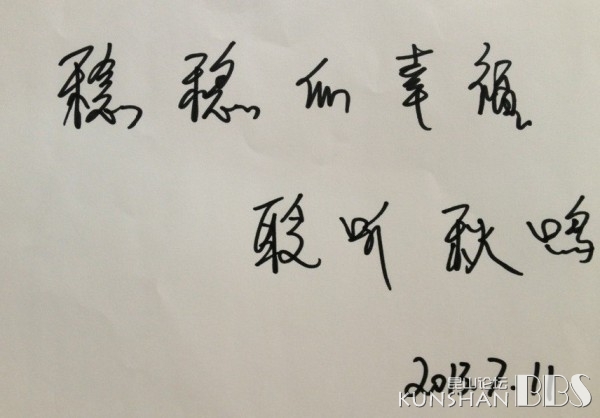 稳稳的幸福
聆听秋鸣
2013.7.11
昆山论坛
KUNSHAN BBS